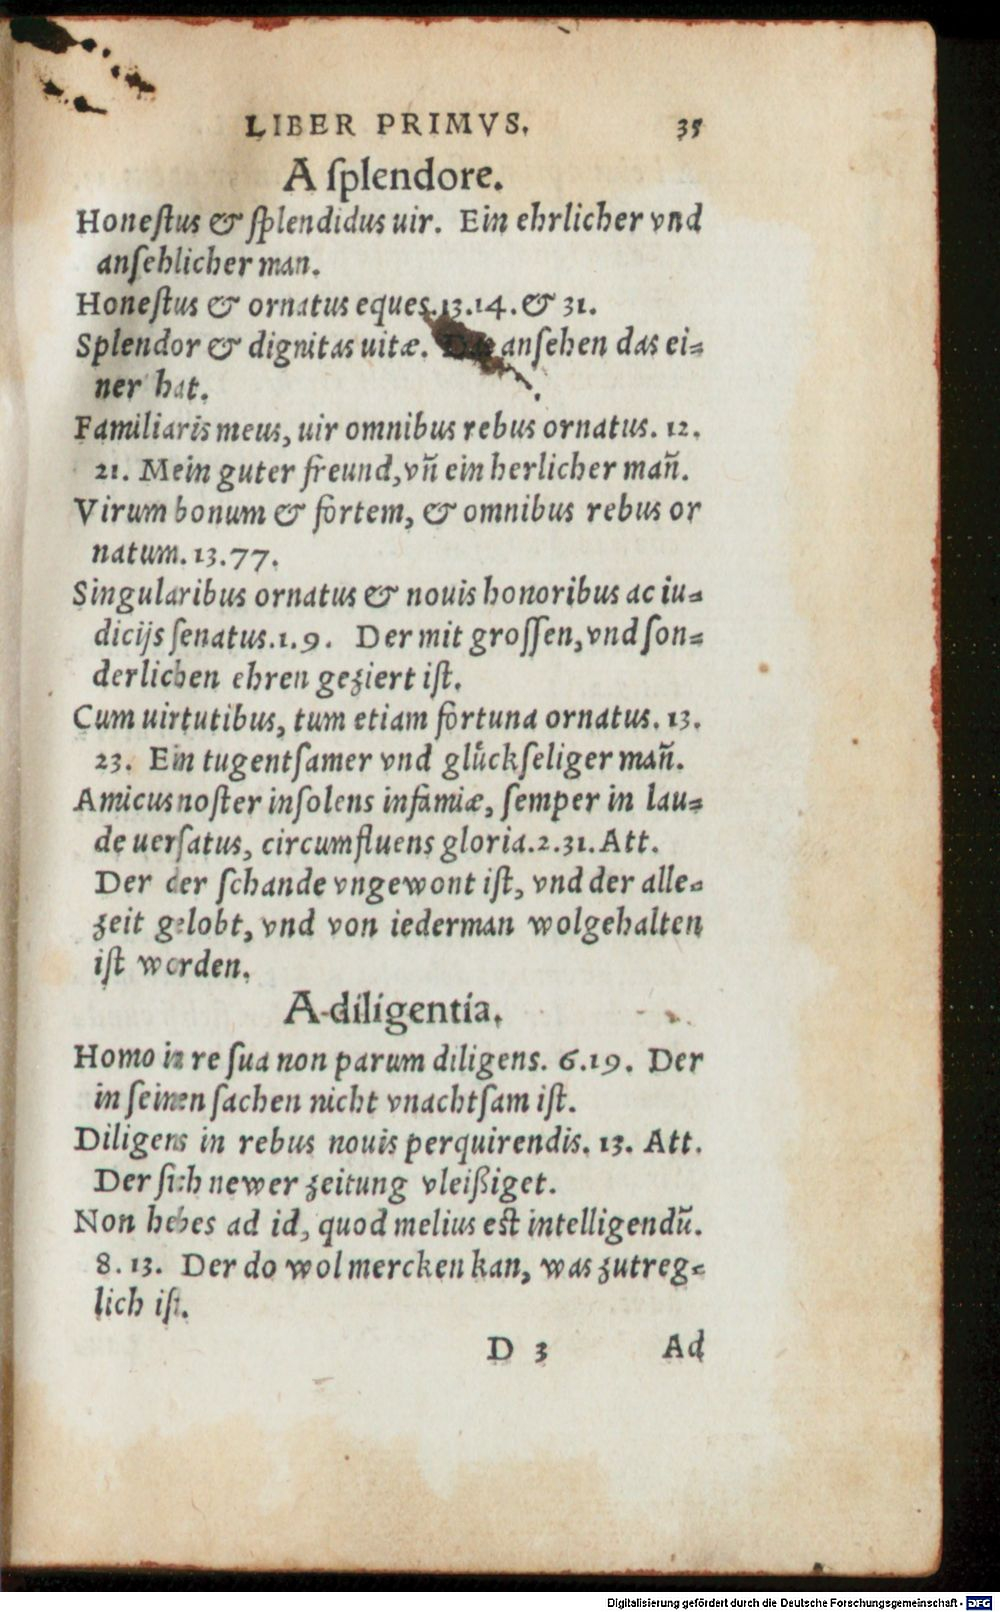 LIBER PRIMVS. 35
A ſplendore.
Honeſtus & ſplendidus uir. Ein ehrlicher vnd
anſehlicher man.
Honeſtus & ornatus eques.13.14.& 31.
Splendor & dignitas uitæ. anſehen das ei=
ner hat.
Familiaris meus, uir omnibus rebus ornatus. 12.
21. Mein guter freund, vñ ein herlicher mañ.
Virum bonum & fortem, & omnibus rebus or
natum. 13.77.
Singularibus ornatus & nouis honoribus ac iu=
dicijs ſenatus.1.9. Der mit groſſen, vnd ſon=
derlichen ehren geziert iſt.
Cum uirtutibus, tum etiam fortuna ornatus. 13.
23. Ein tugentſamer vnd glůckſeliger mañ.
Amicus noſter inſolens infamiæ, ſemper in lau=
de uerſatus, circumfluens gloria.2.31. Att.
Der der ſchande vngewont iſt, vnd der alle=
zeit gelobt, vnd von iederman wolgehalten
iſt worden.
A diligentia.
Homo in re ſua non parum diligens. 6.19. Der
in ſeinen ſachen nicht vnachtſam iſt.
Diligens in rebus nouis perquirendis. 13. Att.
Der ſich newer zeitung vleißiget.
Non hebes ad id, quod melius est intelligendũ.
8.13. Der do wol mercken kan, was zutreg=
lich iſt.
D 3 Ad
Digitalisierung gefördert durch die Deutsche Forschungsgemeinschaft - DFG